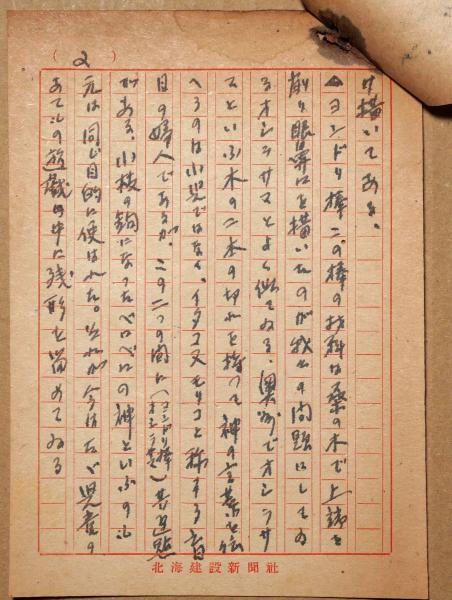 (2)
け描いてある。
ヨンドリ棒 この棒の材料は桑の木で上端を
削り眼鼻口を描いたのが我々の問題にしてゐ
るオシラサマとよく似てゐる、奥州でオシラサ
マといふ木の二本の切れを持つて神の言葉を伝
へるのは小児ではなく、イタコ又モリコと称する盲
目の婦人であるが、この二つの間に(ヨンドリ棒オシラ其)共通点
がある、小枝の鉤になつたベロベロの神といふのも
元は同じ目的に使はれた。それが今はたゞ児童の
あてもの遊戯の中に残形を留めてゐる
北海建設新聞社